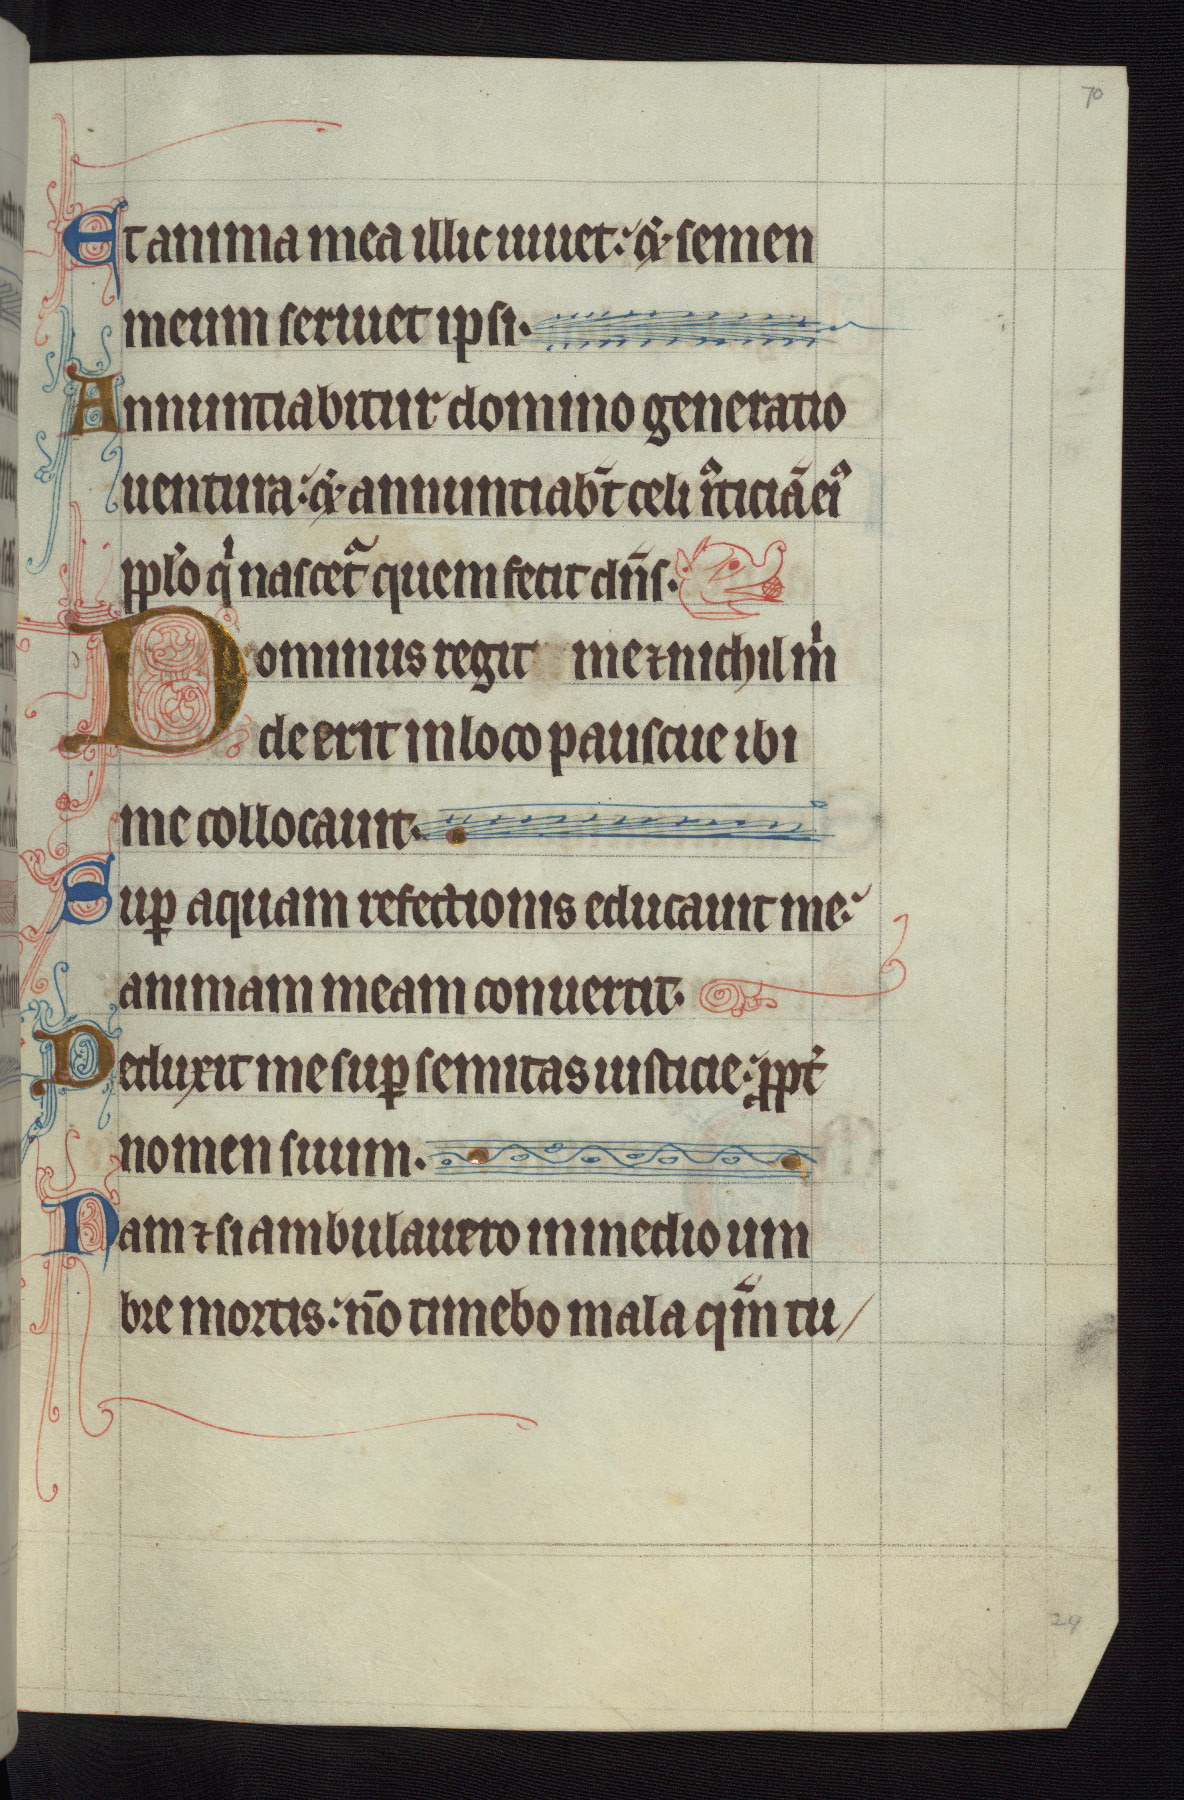 70
Et anima mea illic uiuet: ⁊ semen
meum seruiet ipsi.
Annuntiabitur domino generatio
uentura: ⁊ annuntiabt̄ celi iꝰticiā eiꝰ
pplo qͥ nascet᷑ quem fecit dn̄s.
Dominus regit me ⁊ nichil m̍
deerit in loco pascue ibi
me collocauit.
Suꝑ aquam refectionis educauit me:
animam meam conuertit.
Deduxit me suꝑ semitas iusticie: ꝓpt̉
nomen suum.
Nam ⁊ si ambulauero in medio um
bre mortis: nō timebo mala qm̄ tu/
29